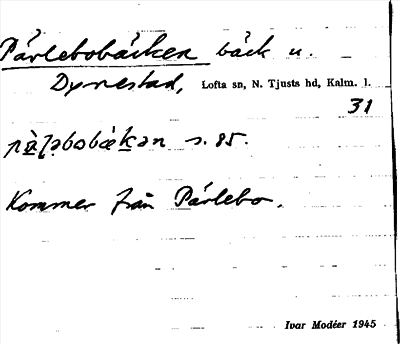 Pärlebobäcken bäck u.
Dynestad, Lofta sn, N. Tjusts hd, Kalm. l.
31
s. 85.
Kommer från Pärlebo.
Ivar Modéer 1945